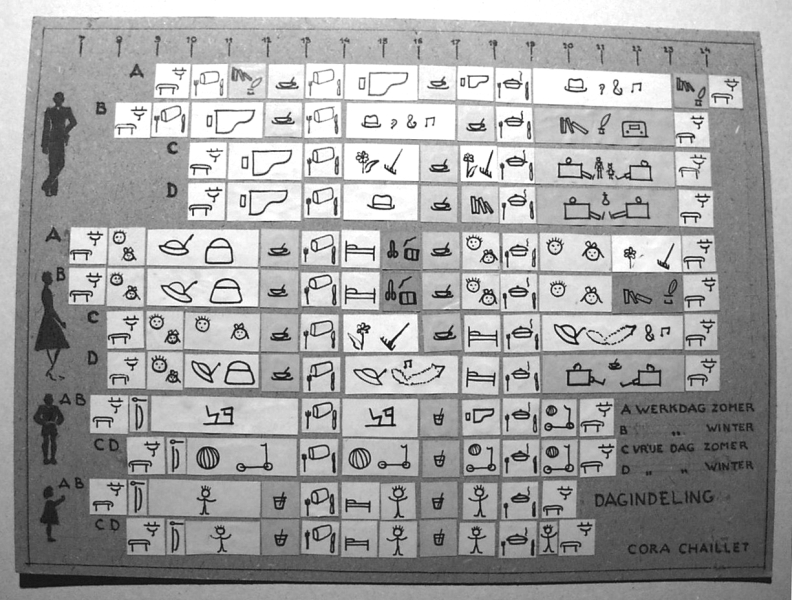 7 8 9 10 11 12 13 14 15 16 17 18 19 20 21 22 23 24
A
B
C
D
A
B
C
D
A B
C D
A B
C D
A WERKDAG ZOMER
B „ WINTER
C VRIJE DAG ZOMER
D „ „ WINTER
DAGINDELING
CORA CHAILLET